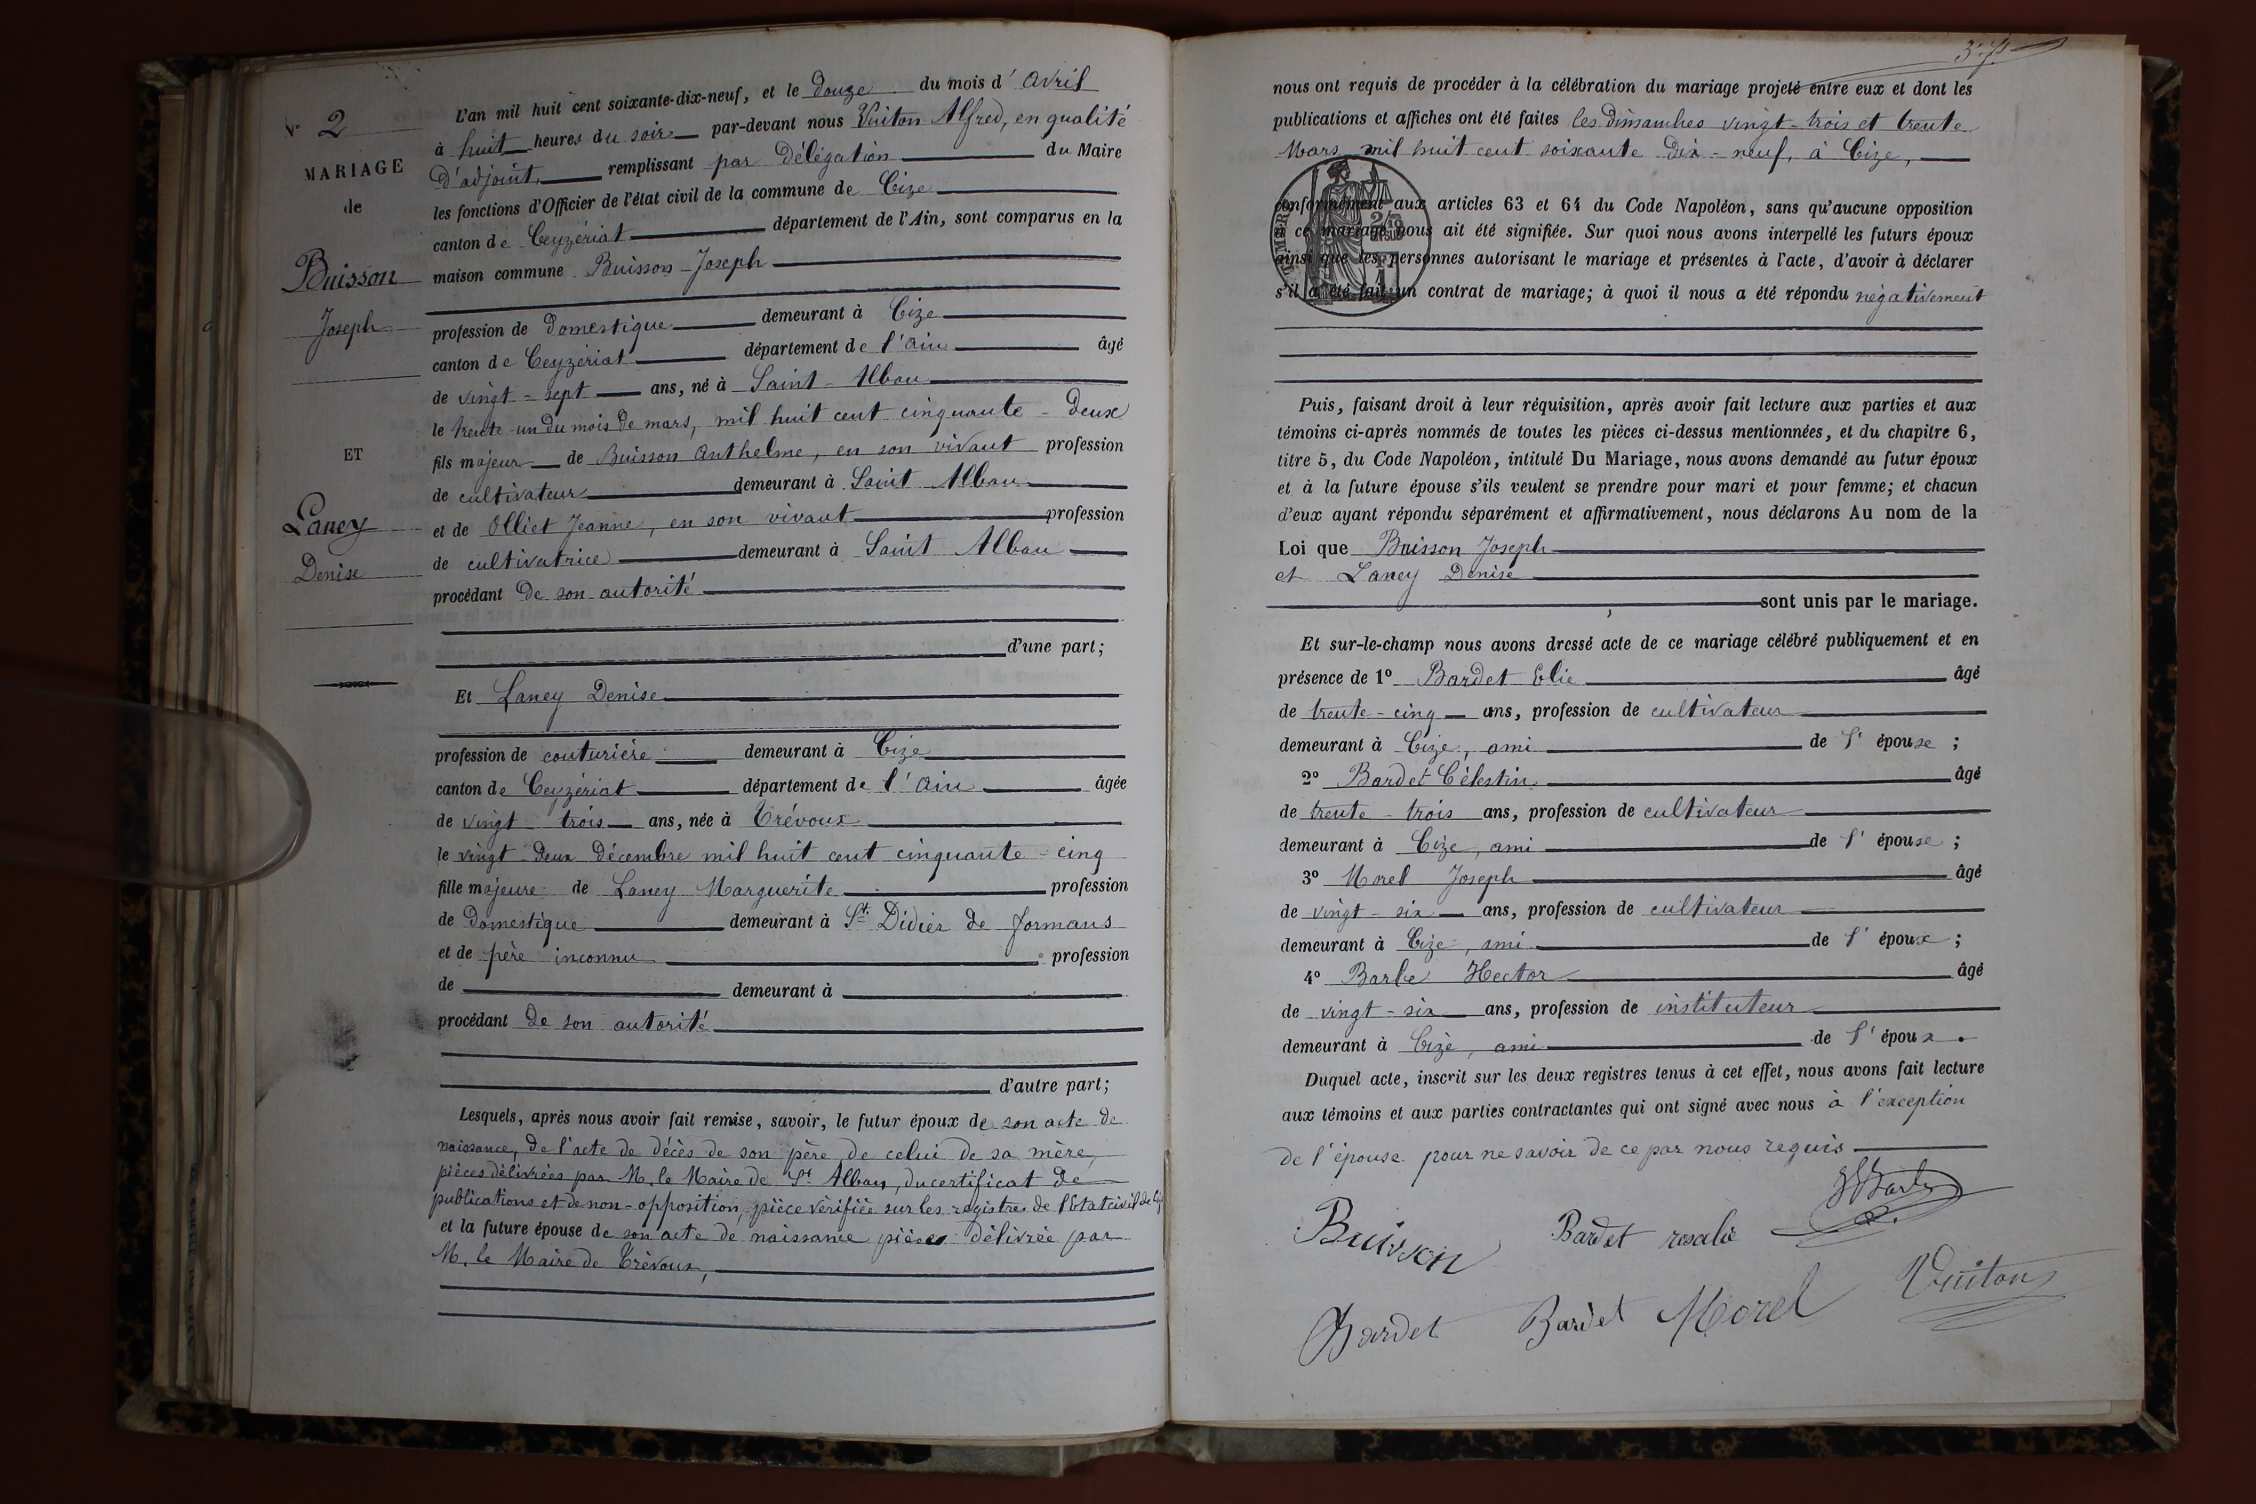 N° 2
MARIAGE
de
Buisson
Joseph
ET
Laney
Denise
L'an mil huit cent soixante-dix-neuf, et le douze du mois d'avril
à huit heures du soir par-devant nous Vuiton Alfred, en qualité
d'adjoint, remplissant par délégation du Maire
les fonctions d'Officier de l'état civil de la commune de Cize
canton de Ceyzériat département de l'Ain, sont comparus en la
maison commune Buisson Joseph
profession de domestique demeurant à Cize
canton de Ceyzériat département de l'ain âgé
de vingt-sept ans, né à Saint-Alban
le trente-un du mois de mars, mil huit cent cinquante-deux
fils majeur de Buisson anthelme, en son vivant profession
de cultivateur demeurant à Saint Alban
et de Olliet Jeanne, en son vivant profession
de cultivatrice demeurant à Saint Alban
procédant de son autorité
d'une part;
Et Laney Denise
profession de couturière demeurant à Cize
canton de Ceyzériat département de l'ain âgée
de vingt-trois ans, née à Trévoux
le vingt-deux décembre mil huit cent cinquante-cinq
fille majeure de Laney Marguerite profession
de domestique demeurant à St Didier de formans
et de père inconnu profession
de demeurant à
procédant de son autorité
d'autre part;
Lesquels, après nous avoir fait remise, savoir, le futur époux de son acte de
naissance, de l'acte de décès de son père, de celui de sa mère,
pièces délivrées par M. le Maire de St Alban, du certificat de
publications et de non-opposition, pièce vérifiée sur les registres de l'Etat civil de
et la future épouse de son acte de naissance pièces délivrée par
M. le Maire de Trévoux,
37
nous ont requis de procéder à la célébration du mariage projeté entre eux et dont les
publications et affiches ont été faites les dimanches vingt-trois et trente
Mars mil huit cent soixante dix-neuf, à Cize,
TIMBRE
conformément aux articles 63 et 64 du Code Napoléon, sans qu'aucune opposition
à ce mariage nous ait été signifiée. Sur quoi nous avons interpellé les futurs époux
ainsi que les personnes autorisant le mariage et présentes à l'acte, d'avoir à déclarer
s'il a été fait un contrat de mariage; à quoi il nous a été répondu négativement
Puis, faisant droit à leur réquisition, après avoir fait lecture aux parties et aux
témoins ci-après nommés de toutes les pièces ci-dessus mentionnées, et du chapitre 6,
titre 5, du Code Napoléon, intitulé Du Mariage, nous avons demandé au futur époux
et à la future épouse s'ils veulent se prendre pour mari et pour femme; et chacun
d'eux ayant répondu séparément et affirmativement, nous déclarons Au nom de la
Loi que Buisson Joseph
et Laney Denise
sont unis par le mariage.
Et sur-le-champ nous avons dressé acte de ce mariage célébré publiquement et en
présence de 1° Bardet Elie âgé
de trente-cinq ans, profession de cultivateur
demeurant à Cize, ami de l'épouse;
2° Bardet Célestin âgé
de trente-trois ans, profession de cultivateur
demeurant à Cize, ami de l'épouse;
3° Morel Joseph âgé
de vingt-six ans, profession de cultivateur
demeurant à Cize, ami de l'époux;
4° Barbe Hector âgé
de vingt-six ans, profession de instituteur
demeurant à Cize, ami de l'époux.
Duquel acte, inscrit sur les deux registres tenus à cet effet, nous avons fait lecture
aux témoins et aux parties contractantes qui ont signé avec nous à l'exception
de l'épouse pour ne savoir de ce par nous requis
Buisson Bardet rosalie HBarbe
Bardet Bardet Morel Vuiton